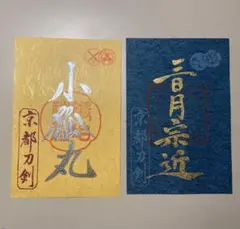 小狐丸
京都刀剣
三日月宗近
京都刀剣